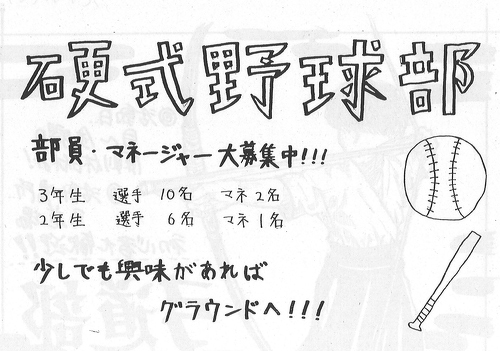 硬式野球部
部員・マネージャー大募集中!!!
3年生 選手 10名 マネ2名
2年生 選手 6名 マネ1名
少しでも興味があれば
グラウンドへ!!!